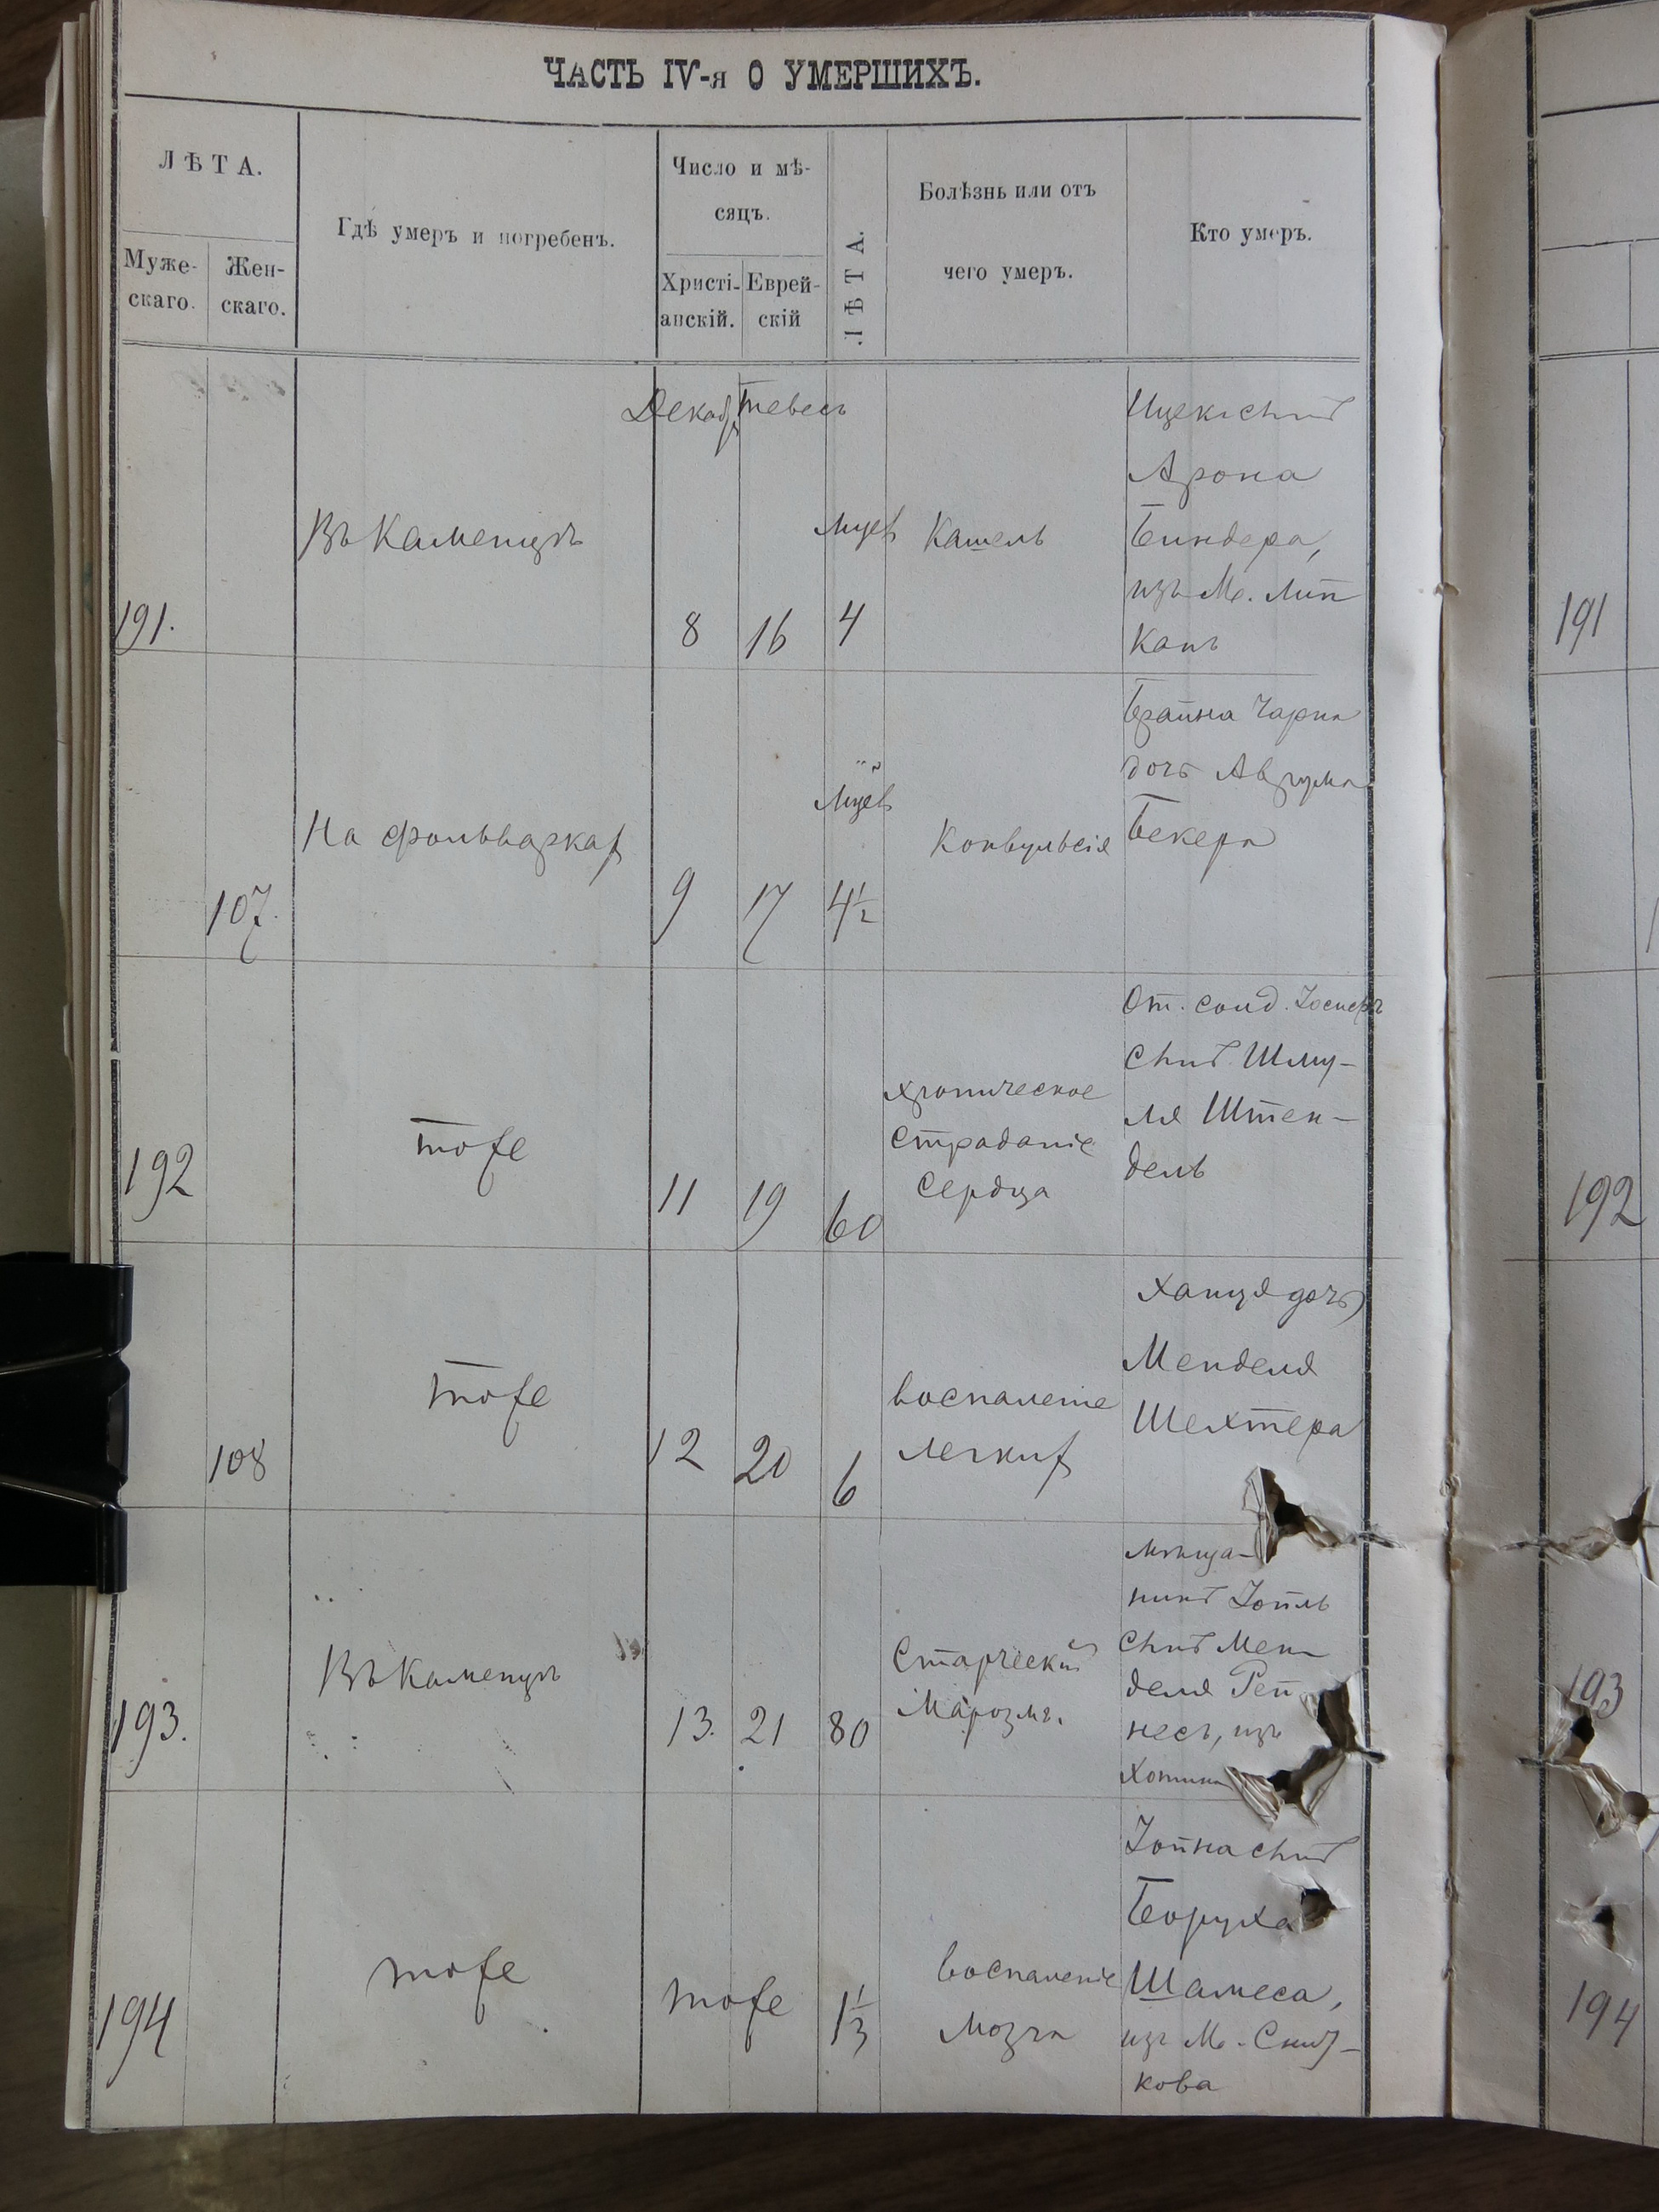 ЧАСТЬ IV-я О УМЕРШИХЪ.
ЛѢТА.
Муже-
скаго.
Жен-
скаго.
Гдѣ умеръ и погребенъ.
Число и мѣ-
сяцъ.
Христі-
анскій.
Еврей-
скій
ЛѢТА.
Болѣзнь или отъ
чего умеръ.
Кто умеръ.
Декабр Тевесъ
191.
Въ Каменцѣ
8 16
Мцев
4
Кашель
Ицекъ сынъ
Арона
Биндера,
изъ М. Лип
канъ
191
107.
На фольварках
9 17
Мцев
4 1/2
Конвульсія
Брайна Чарна
дочь Аврума
Бекера
192
тоже
11 19 60
хроническое
страданіе
сердца
От. солд. Іосифъ
сынъ Шму-
ля Штен-
дель
192
108
тоже
12 20 6
воспаленіе
легких
Ханця дочь
Менделя
Шехтера
193.
Въ Каменцѣ
13. 21 80
Старческій
Марозмъ.
мѣща-
нинъ Іойль
сынъ Мен
деля Рей
несъ, изъ
Хотина
193
194
тоже
тоже
1 1/3
воспаленіе
мозга
Іойна сынъ
Боруха
Шамеса,
изъ М. Сніт-
кова
194